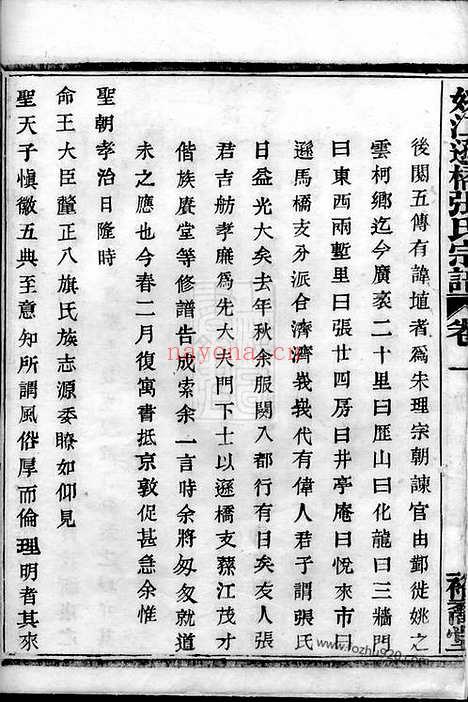 姚江遜橋張氏宗譜 卷一
後閱五傳有諱埴者爲朱理宗朝諫官由鄞徙姚之
雲柯鄉迄今廣袤二十里曰歷山曰化龍曰三牆門
曰東西兩塹里曰張廿四房曰井亭庵曰悅來市曰
遜馬橋支分派合濟濟峩峩代有偉人君子謂張氏
日益光大矣去年秋余服闋入都行有日矣友人張
君吉舫孝廉爲先大夫門下士以遜橋支蓀江茂才
偕族賡堂等修譜告成索余一言時余將匆匆就道
未之應也今春二月復寓書抵京敦促甚急余惟
聖朝孝治日隆時
命王大臣釐正八旗氏族志源委瞭如仰見
聖天子愼徽五典至意知所謂風俗厚而倫理明者其來
nayona.cn
www.fozhu920.com